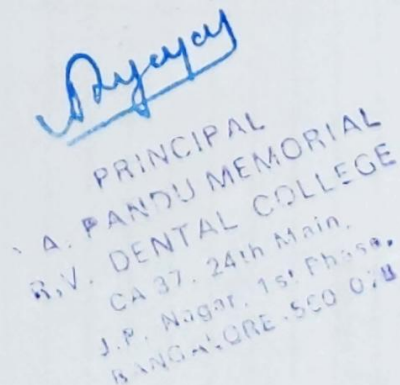 PRINCIPAL
A. PANDU MEMORIAL
R.V. DENTAL COLLEGE
CA 37, 24th Main,
J.P. Nagar, 1st Phase,
BANGALORE-560 078